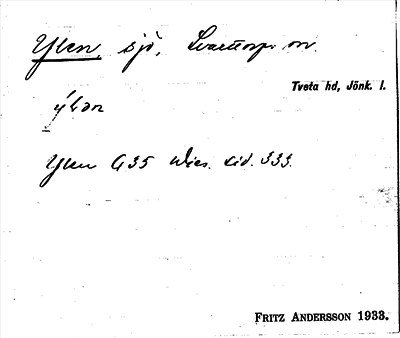 Ylen, sjö, Svarttorps sn.
Tveta hd, Jönk. l.
ýlən
Ylen G35 Wies. sid. 333.
FRITZ ANDERSSON 1933.